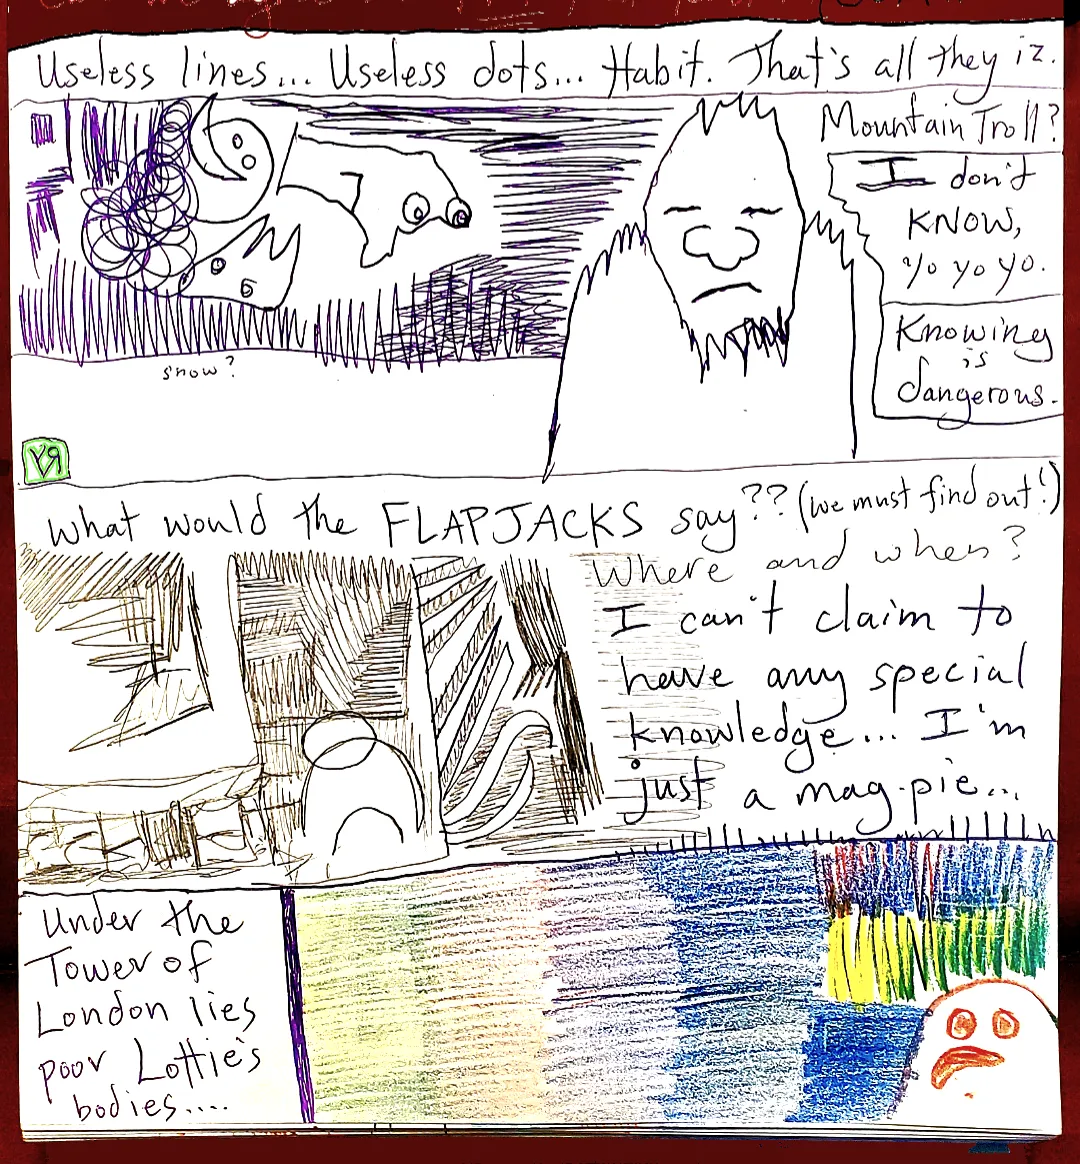 Useless lines... Useless dots... Habit. That's all they iz.
Mountain Troll?
I don't
KNOW,
yo yo yo.
Knowing
is
dangerous.
snow?
What would the FLAPJACKS say?? (we must find out!)
Where and when?
I can't claim to
have any special
knowledge... I'm
just a mag-pie...
Under the
Tower of
London lies
poor Lottie's
bodies....